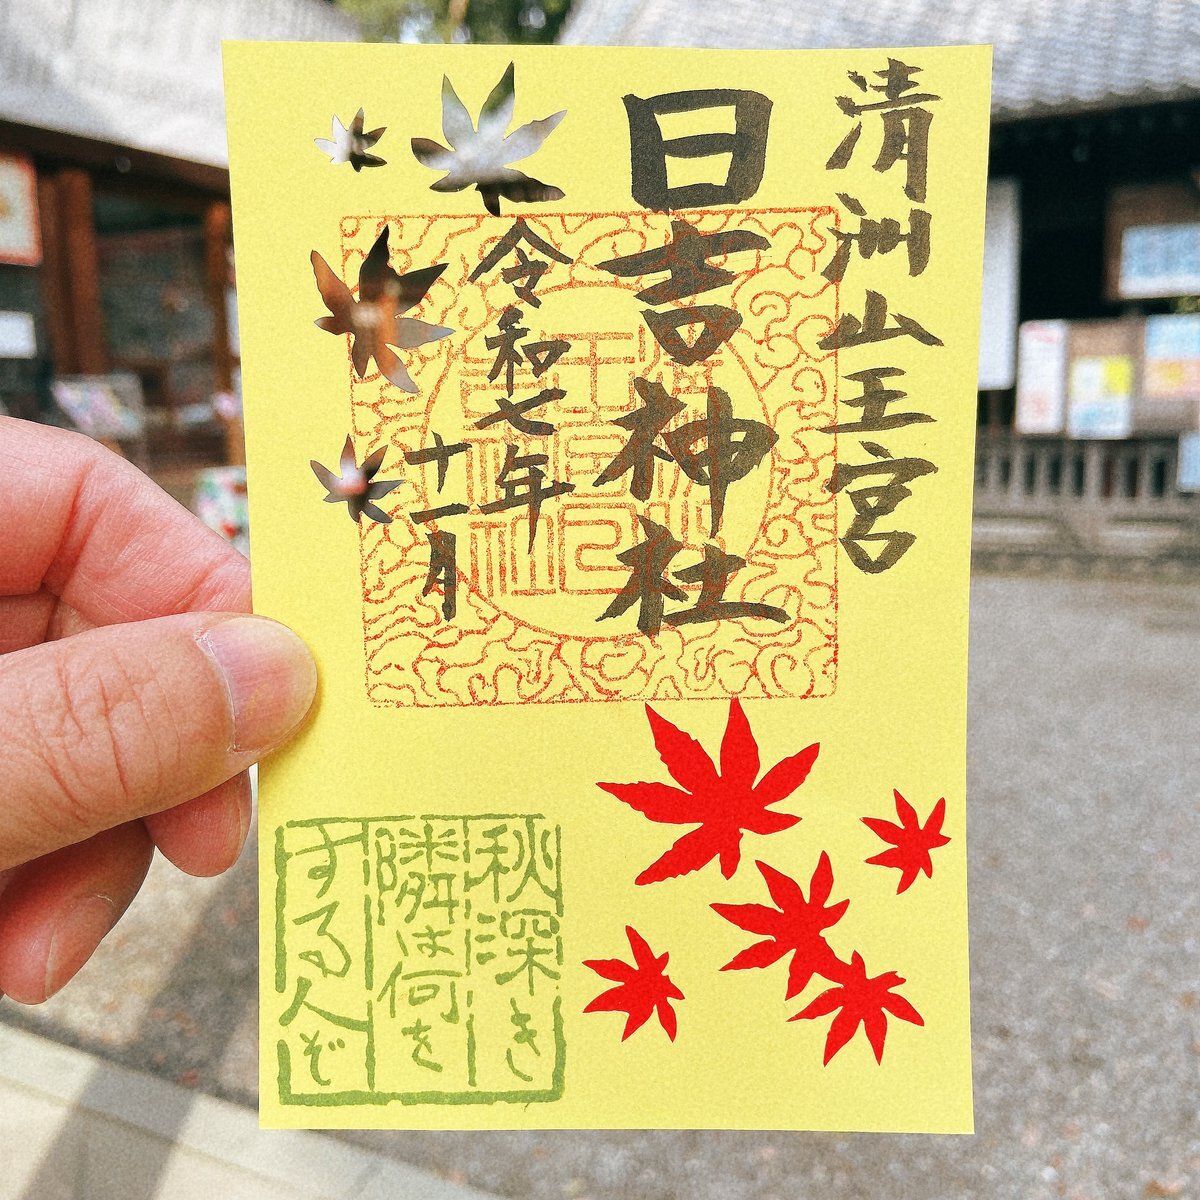 清洲山王宮
日吉神社
令和七年
十一月
秋深き
隣は何を
する人ぞ